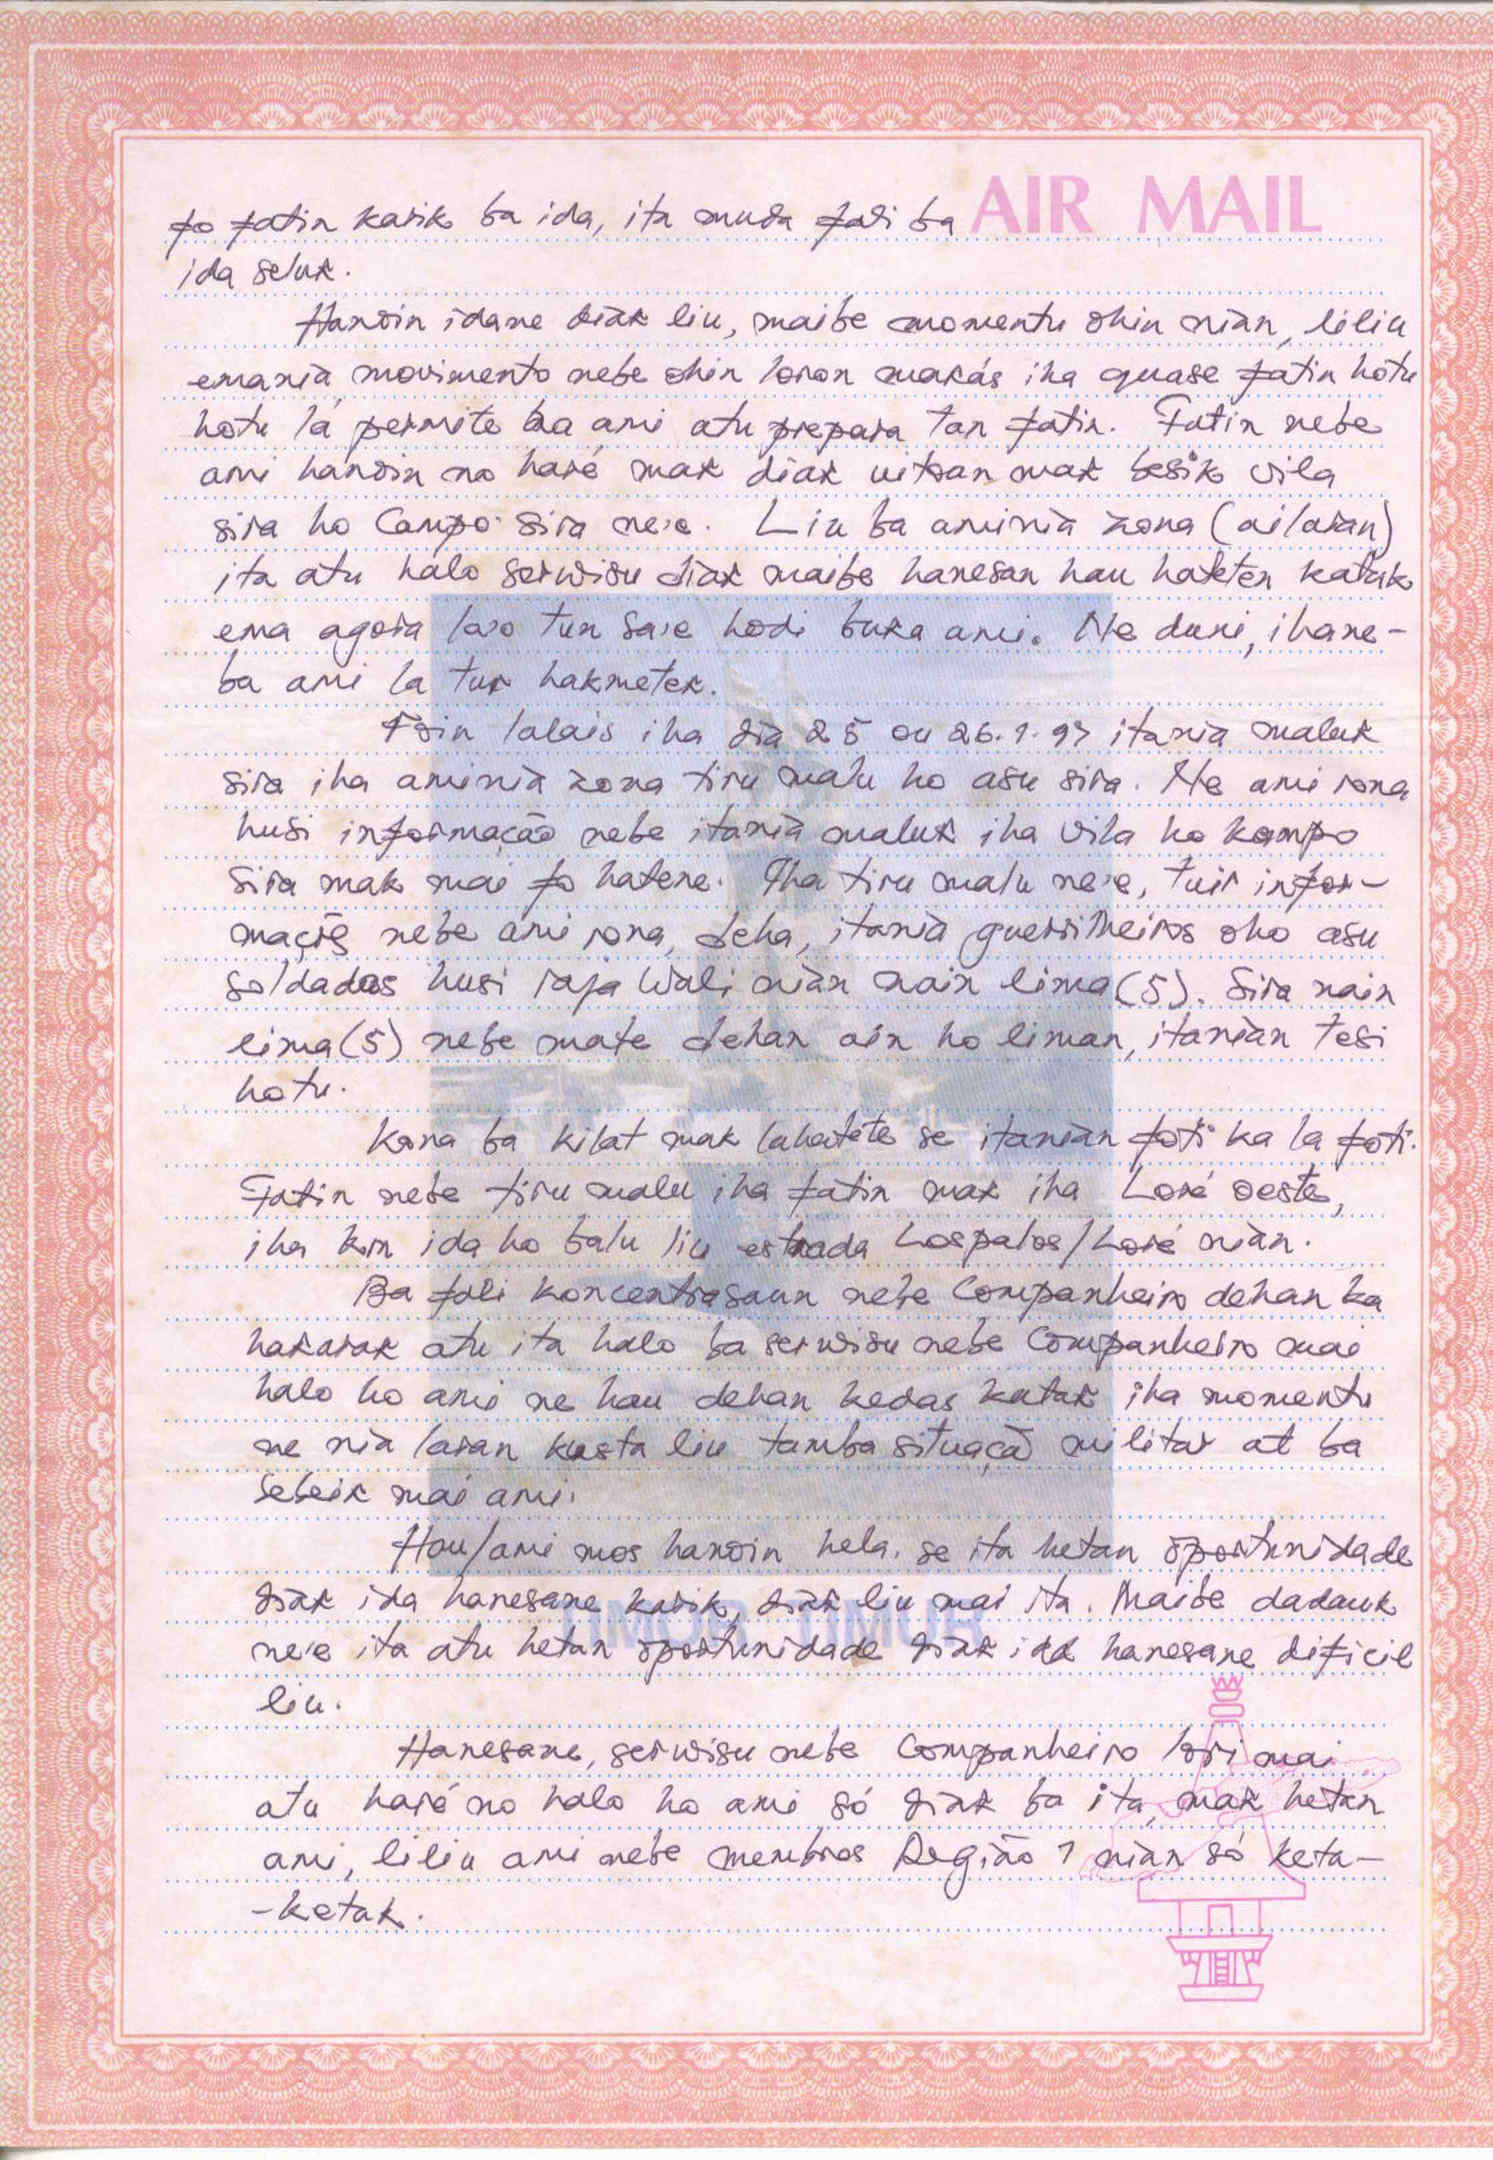 AIR MAIL
fo fatin karik ba ida, ita muda fali ba
ida seluk.
Hanoin idane diak liu, maibe momentu ohin nian, liliu
emania movimento nebe ohin loron makás iha quase fatin hotu
hotu lá permite ba ami atu prepara tan fatin. Fatin nebe
ami hanoin no haré mak diak uitoan mak besik vila
sira ho Campo sira ne'e. Liu ba aminia zona (ailaran)
ita atu halo serwisu diak maibe hanesan hau hateten katak
ema agora lao tun sa'e hodi buka ami. Ne duni, ihane-
ba ami la tur hakmetek.
Foin lalais iha dia 25 ou 26.1.97 itania maluk
sira iha aminia zona tiru malu ho asu sira. Ne ami rona
husi informação nebe itania maluk iha vila ho kampo
sira mak mai fo hatene. Iha tiru malu ne'e, tuir infor-
mações nebe ami rona, deha, itania guerrilheiros oho asu
soldados husi raja Wali nian nain lima (5). Sira nain
lima (5) nebe mate dehan ain ho liman, itanian tesi
hotu.
Kona ba kilat mak lahatete se itanian foti ka la foti.
Fatin nebe tiru malu iha fatin mak iha Loré oeste,
iha km ida ho balu liu estrada Lospalos/Loré nian.
Ba fali koncentrasaun nebe Companheiro dehan ka
hakarak atu ita halo ba serwisu nebe Companheiro mai
halo ho ami ne hau dehan kedas katak iha momentu
ne nia laran kusta liu tamba situaçã militar at ba
bebeik mai ami.
Hau/ami mos hanoin hela, se ita hetan oportunidade
diak ida hanesane karik, diak liu mai ita. Maibe dadauk
ne'e ita atu hetan oportunidade diak ida hanesane dificil
liu.
Hanesane, serwisu nebe Companheiro lori mai
atu haré no halo ho ami só diak ba ita, mak hetan
ami, liliu ami nebe membros Região 1 nian só keta-
-ketak.
TIMOR TIMUR